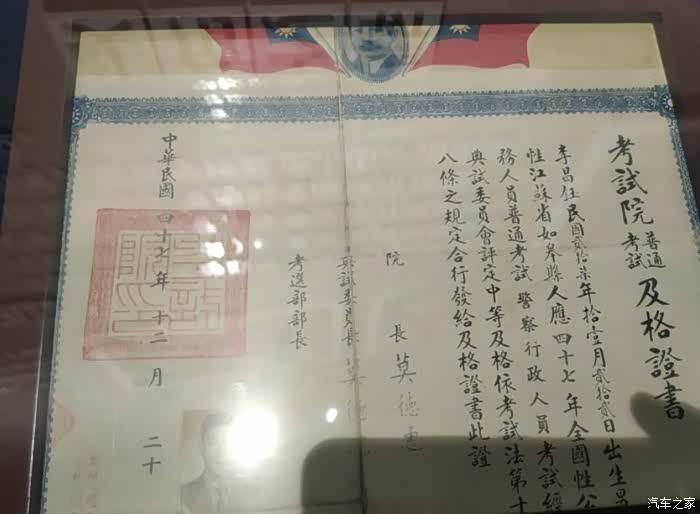 考試院普通考試及格證書
李昌任民國貳拾柒年拾壹月貳拾貳日出生男
性江蘇省如皋縣人應四十七年全國性公
務人員普通考試警察行政人員考試經
典試委員會評定中等及格依考試法第十
八條之規定合行發給及格證書此證
院長莫德惠
典試委員長莫德
考選部部長
中華民國四十七年十二月二十
考試院印
汽车之家